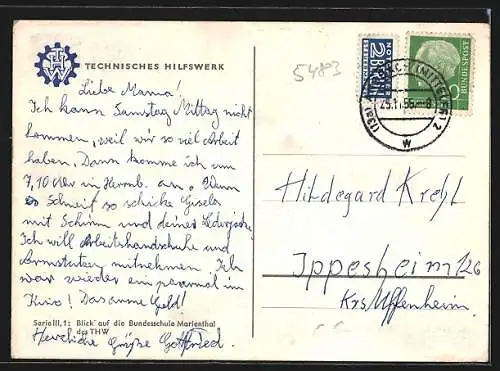 TECHNISCHES HILFSWERK
Liebe Mama!
Ich kann Samstag Mittag nicht
kommen, weil wir so viel Arbeit
haben. Dann komme ich um
7,10 Uhr in an. Wenn
es Schneit so schicke Gisela
mit Schirm und deiner
Ich will Arbeitshandschuhe und
mitnehmen. Ich
war wieder ein paarmal im
Kino! Das arme Geld!
Serie III, 1: Blick auf die Bundesschule Marienthal
des THW
Herzliche Grüße Gottfried.
54803
NOTOPFER
2 BERLIN
STEUERMARKE
DEUTSCHE BUNDESPOST
(13a)
2
W
Hildegard Krehl
Ippesheim 126
Krs Uffenheim.